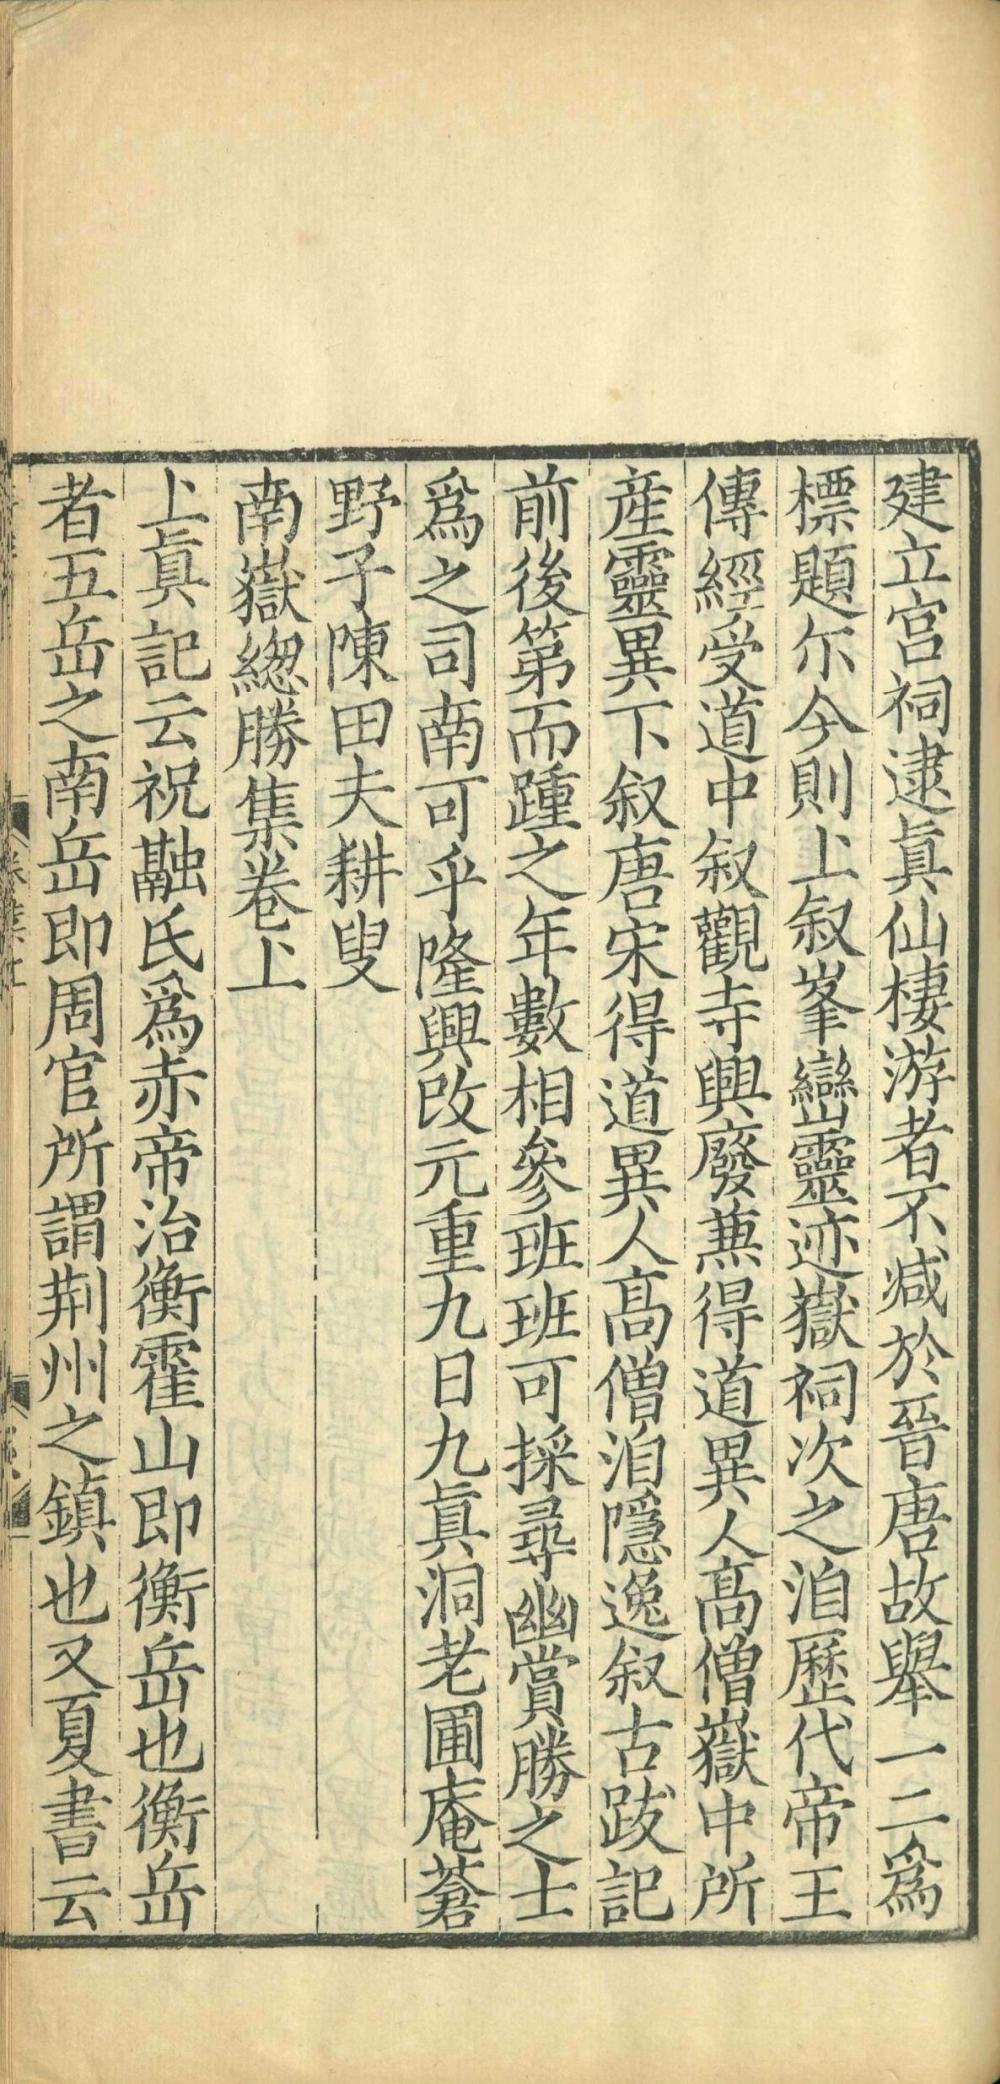 建立宫祠逮眞仙棲游者不减於晉唐故舉一二爲
標題尓今則上叙峯巒靈迹嶽祠次之洎歷代帝王
傳經受道中叙觀寺興廢兼得道異人髙僧嶽中所
産靈異下叙唐宋得道異人髙僧洎隱逸叙古跋記
前後第而踵之年數相參班班可採尋幽賞勝之士
爲之司南可乎隆興改元重九日九眞洞老圃庵蒼
野子陳田夫耕叟
南嶽緫勝集卷上
上眞記云祝融氏爲赤帝治衡霍山即衡岳也衡岳
者五岳之南岳即周官所謂荆州之鎮也又夏書云